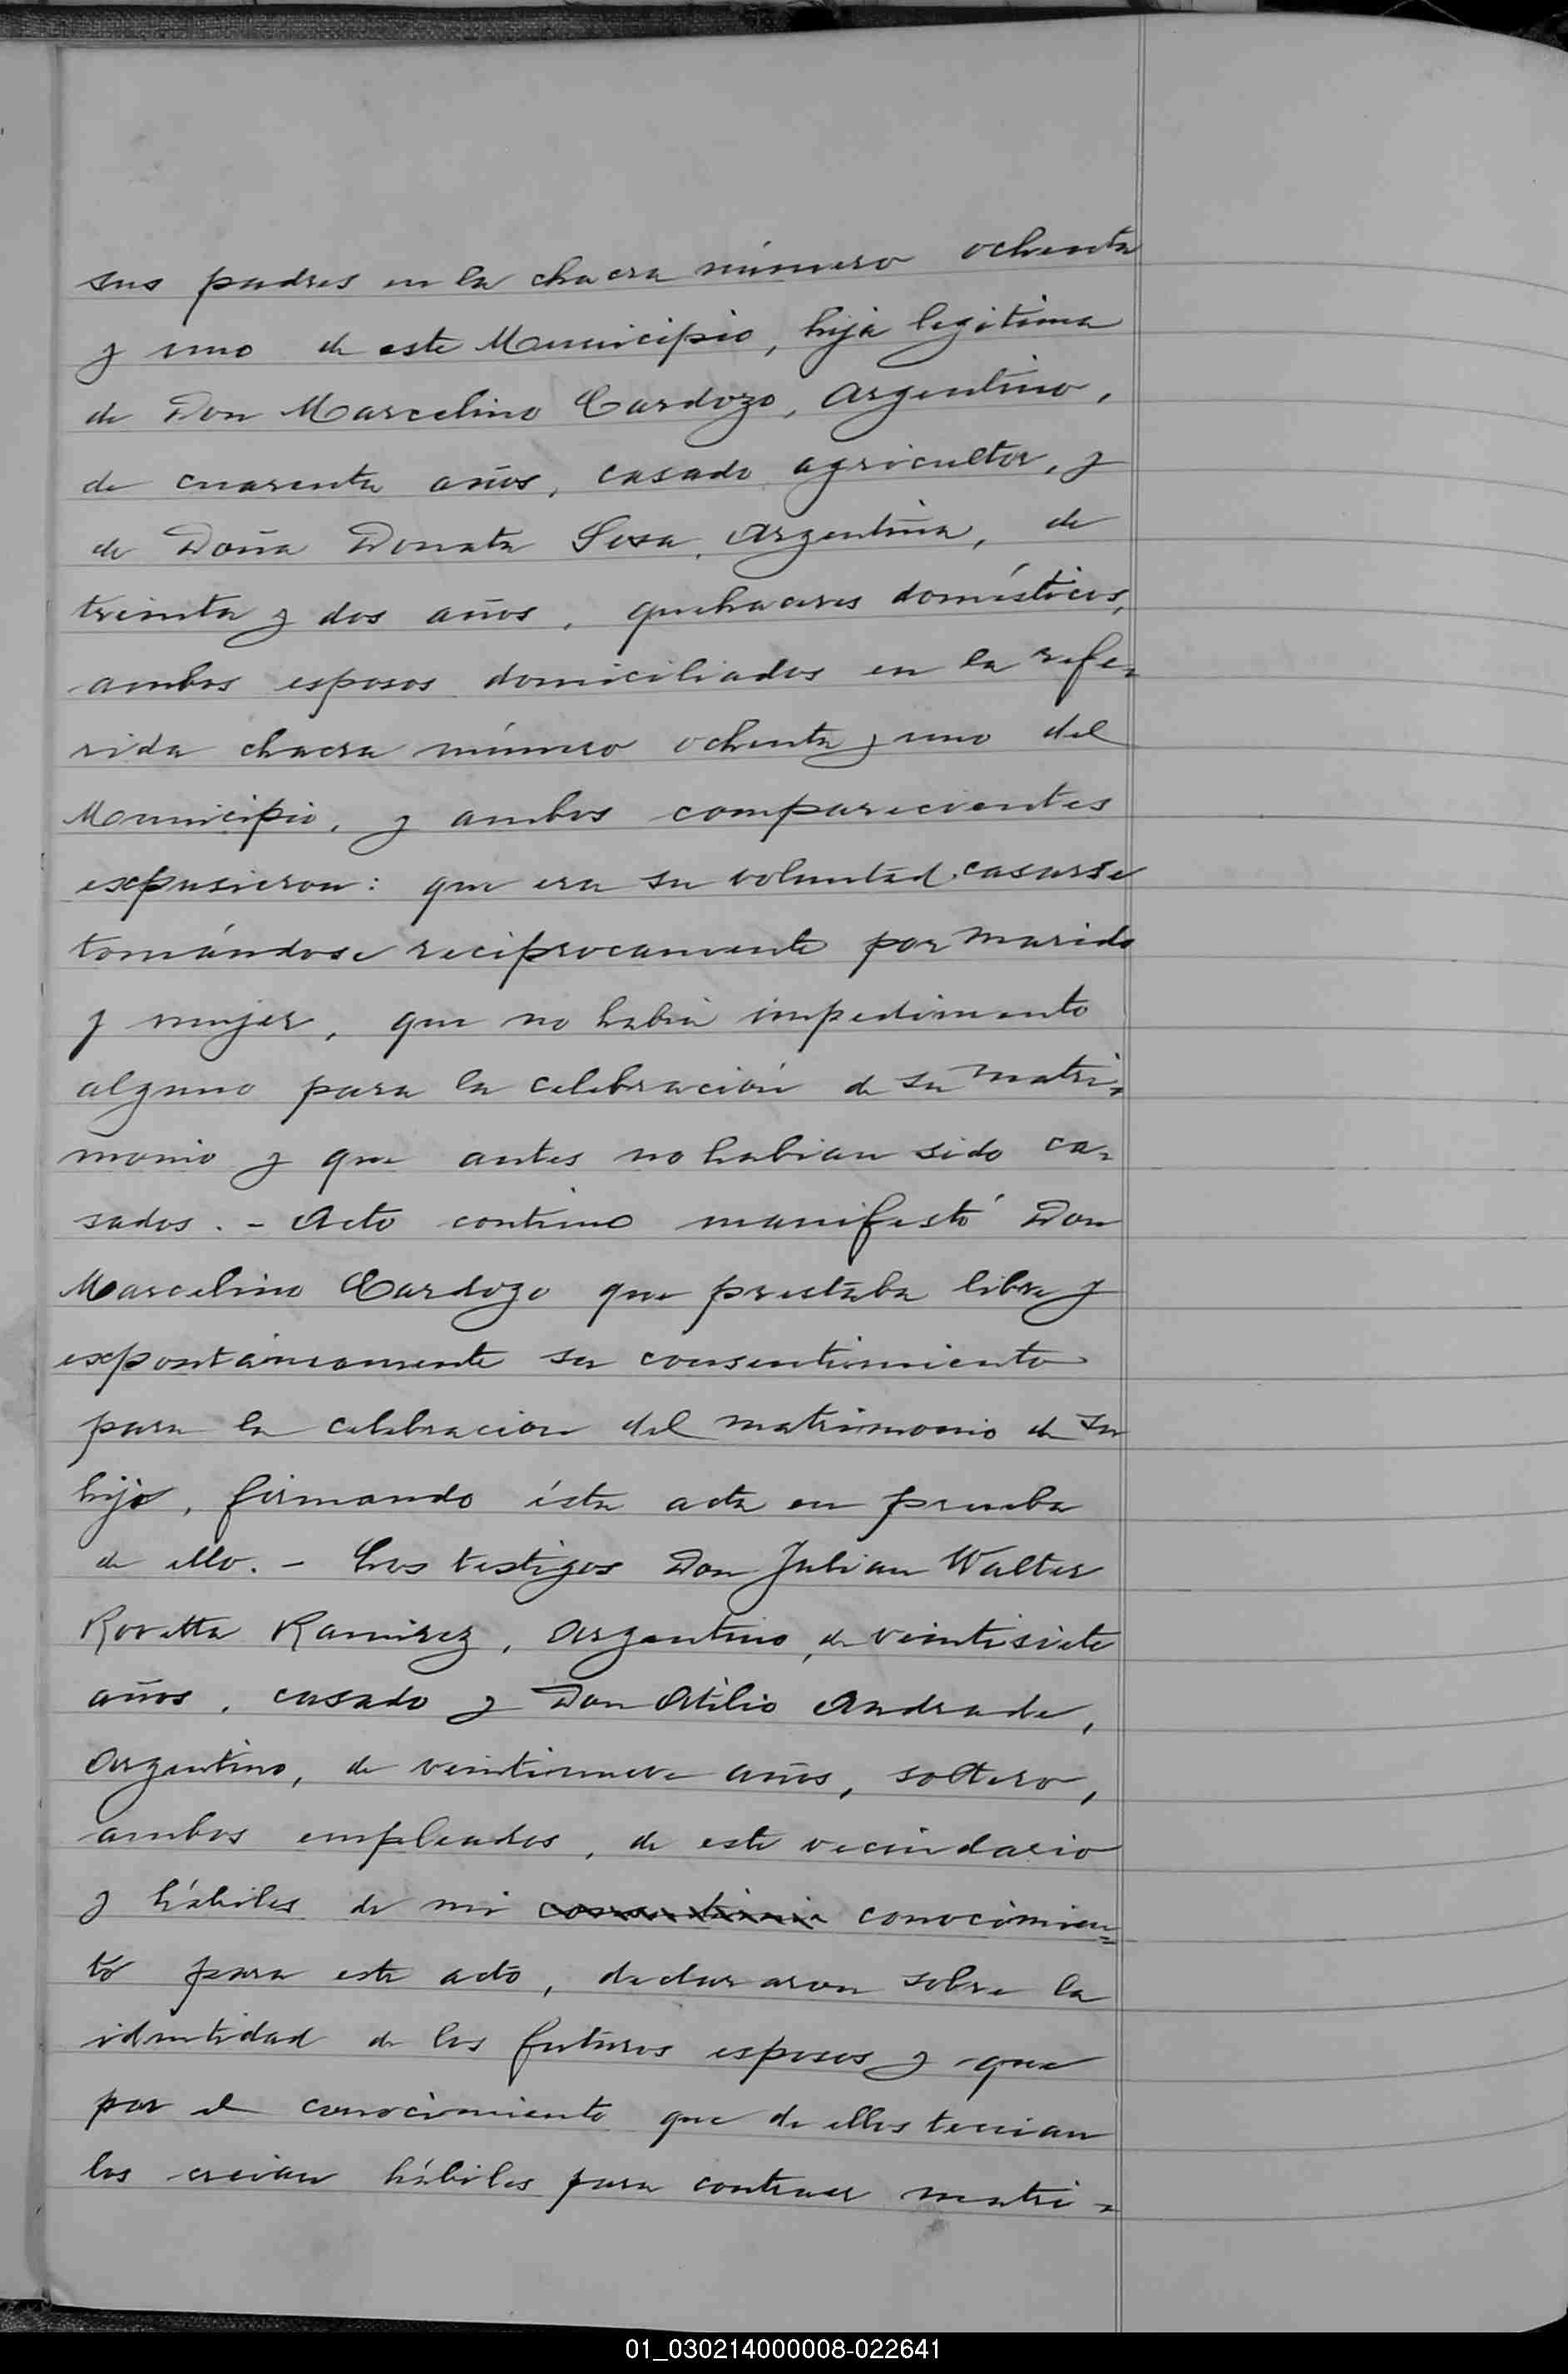 sus padres en la chacra número ochenta
y uno de este Municipio, hija legitima
de Don Marcelino Cardozo, Argentino,
de cuarenta años, casado, agricultor, y
de Doña Donata Sosa, Argentina, de
treinta y dos años, quehaceres domésticos,
ambos esposos domiciliados en la refe-
rida chacra número ochenta y uno del
Municipio, y ambos comparecientes
expusieron: que era su voluntad casarse
tomándose reciprocamente por marido
y mujer, que no habia impedimento
alguno para la celebración de su matri-
monio y que antes no habian sido ca-
sados. - Acto continuo manifestó Don
Marcelino Cardozo que prestaba libre y
expontáneamente su consentimiento
para la celebracion del matrimonio de su
hija, firmando ésta acta en prueba
de ello. - Los testigos Don Julian Walter
Rovetta Ramirez, Argentino, de veintisiete
años, casado y Don Atilio Andrade,
Argentino, de veintinueve años, soltero,
ambos empleados, de este vecindario
y hábiles de mi conocimien=
to para este acto, declararon sobre la
identidad de los futuros esposos y que
por el conocimiento que de ellos tenian
los creian hábiles para contraer matri-
01_030214000008-022641